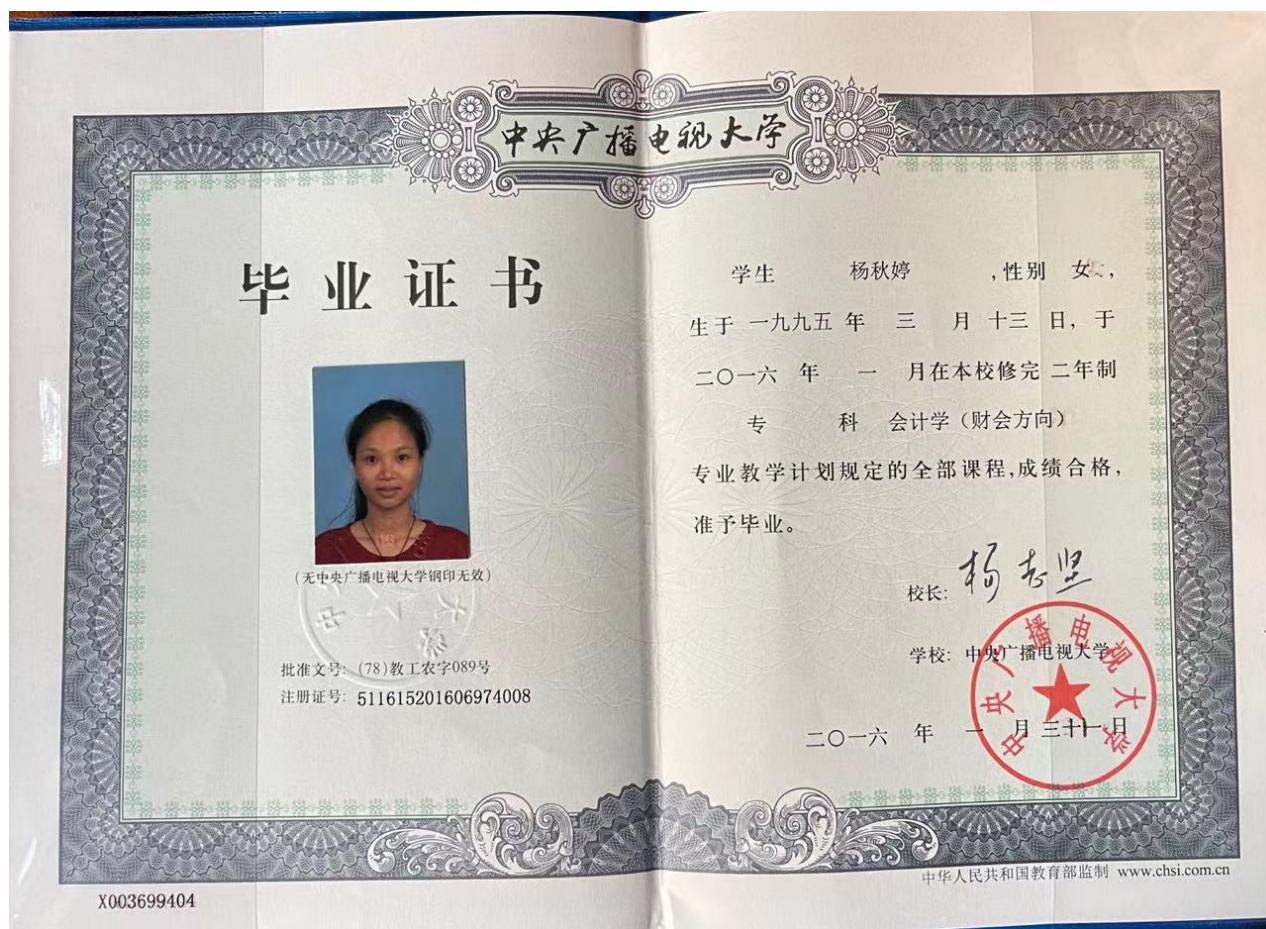 中央广播电视大学
毕业证书
(无中央广播电视大学钢印无效)
批准文号: (78)教工农字089号
注册证号: 511615201606974008
X003699404
学生 杨秋婷 ,性别 女,
生于 一九九五 年 三 月 十三 日, 于
二〇一六 年 一 月在本校修完 二年制
专 科 会计学(财会方向)
专业教学计划规定的全部课程,成绩合格,
准予毕业。
校长: 杨志坚
学校: 中央广播电视大学
中央广播电视大学
二〇一六 年 一 月 三十一 日
中华人民共和国教育部监制 www.chsi.com.cn